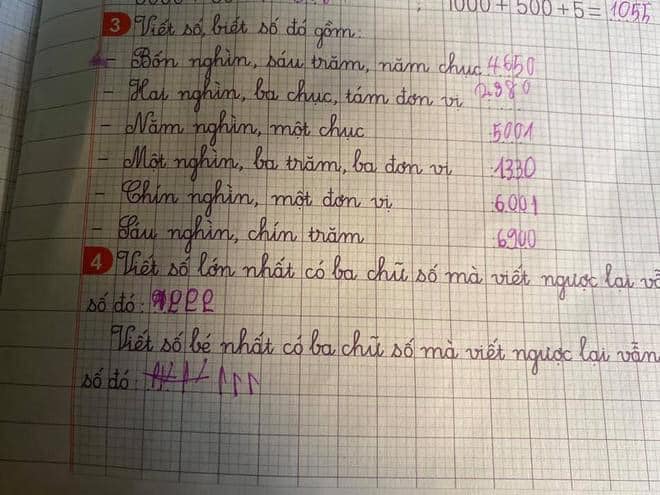 1000 + 500 + 5 = 1055
3 Viết số, biết số đó gồm:
- Bốn nghìn, sáu trăm, năm chục 4650
- Hai nghìn, ba chục, tám đơn vị 2980
- Năm nghìn, một chục 5001
- Một nghìn, ba trăm, ba đơn vị 1330
- Chín nghìn, một đơn vị 6001
- Sáu nghìn, chín trăm 6900
4 Viết số lớn nhất có ba chữ số mà viết ngược lại
số đó:
Viết số bé nhất có ba chữ số mà viết ngược lại vẫn
số đó: 111